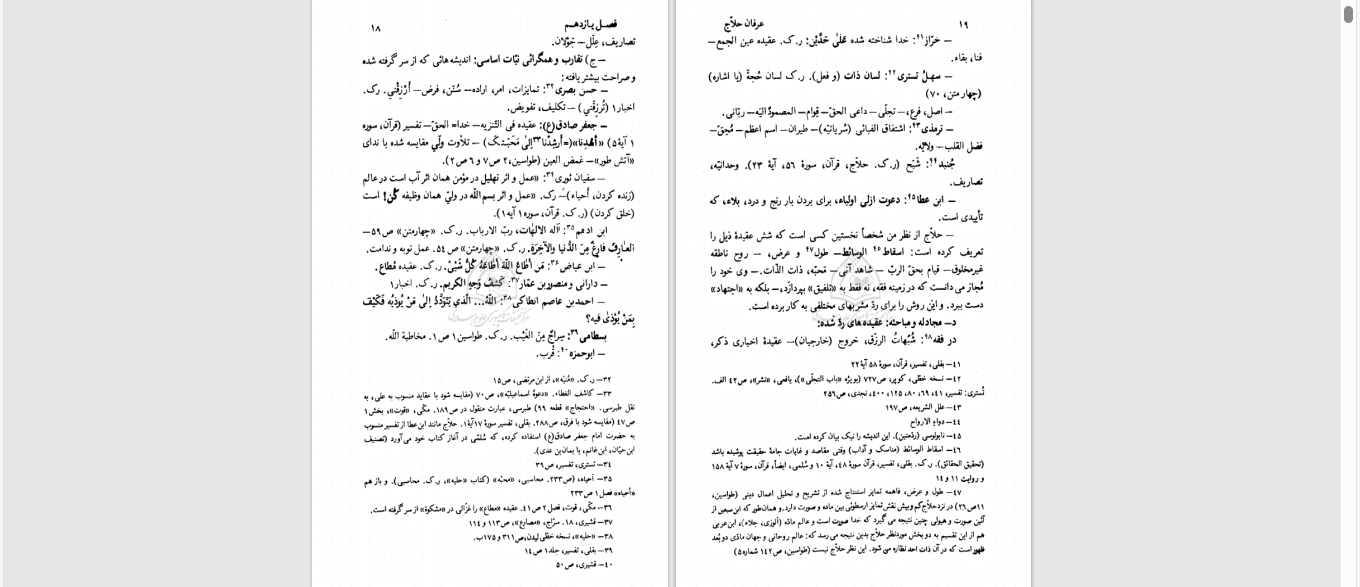 ۱۸
فصـل یـازدهـم
تصاریف، عِلَل — جَوَلان.
— ج) تقارب و همگرائی نیّات اساسی: اندیشه‌هائی که از سر گرفته شده
و صراحت بیشتر یافته:
— حسن بصری۳۲: تمایزات، امر، اراده— سُنَن، فرض— اُرزُقْنی. رک.
اخبار۱ (تُرزِقنی) — تکلیف، تفویض.
— جعفر صادق(ع): عقیده فی التّنزیه— خدا= الحقّ— تفسیر (قرآن، سوره
۱ آیهٔ ۵) «اهْدِنا»(=اُرشِدْنا۳۳ اِلیٰ مَحَبَّتِکَ) — تلاوت ولّی مقایسه شده با ندای
«آتش طور»— غمض العین (طواسین،۲ ص۷ و ۶ ص۲).
— سفیان ثوری۳۴: «عمل و اثر تهلیل در مؤمن همان اثر آب است در عالم
(زنده کردن، اَحیاء)— رک. «عمل و اثر بسم‌الله در ولیّ همان وظیفه کُن! است
(خلق کردن) (ر.ک. قرآن، سوره ۱ آیه ۱).
ابن ادهم۳۵: اِلٰه الالهٰات، ربّ الارباب. ر.ک. «چهارمتن» ص۵۹—
العـارِفُ فارِغٌ مِنَ الدُّنیا والآخِرَة. ر.ک. «چهارمتن» ص۵۴. عمل توبه و ندامت.
— ابن عیاض۳۶: مَن اَطٰاعَ اللّهَ اَطٰاعَهُ کُلُّ شَیْئٍ. ر.ک. عقیده مُطاع.
— دارانی و منصوربن عمّار۳۷: کَشْفُ وَجهِ الکریم. ر.ک. اخبار۱
— احمدبن عاصم انطاکی۳۸: اَللّهُ... الَّذی یَتَوَدَّدُ اِلیٰ مَنْ یُوْذیهِ فَکَیْفَ
بِمَنْ یُوْذیٰ فیهِ؟
بسطامی۳۹: سِراجٌ مِنَ الغَیْب. ر.ک. طواسین۱ ص۱. مخاطبهٔ اللّه.
— ابوحمزه۴۰: قُرب.
۳۲— ر.ک. «مُنیَه»، از ابن مرتضی، ص۱۵
۳۳— کاشف الغطاء. «دعوهٔ اسماعیلیّه»، ص۷۰ (مقایسه شود با عقاید منسوب به علی، به
نقل طبرسی. «احتجاج» قطعه ۹۹) طبرسی، عبارت منقول در ص۱۸۹. مکّی، «قوت»، بخش۱
ص۴۷ (مقایسه شود با فرق، ص۲۸۸. بقلی، تفسیر سورهٔ ۱۷آیهٔ۱. حلاّج مانند ابن عطا از تفسیر منسوب
به حضرت امام جعفر صادق(ع) استفاده کرده، که سُلَمی در آغاز کتاب خود می‌آورد (تصنیف
ابن حیّان، ابن غانم، یا یمان‌بن عَدی).
۳۴— تستری، تفسیر، ص۳۹
۳۵— اَحیاء، (ص۲۳۳. محاسبی، «محبّه» (کتاب «حلیه»، ر.ک. محاسبی). و باز هم
«اَحیاء» فصل۱ ص۲۳۳
۳۶— مکّی، قوت، فصل۲ ص۴۱. عقیده «مطاع» را غزّالی در «مشکوة» از سر گرفته است.
۳۷— قشیری، ۱۸. سرّاج، «مصارع»، ص۱۱۳ و ۱۱۴
۳۸— «حلیه»، نسخه خطّی لیدن، ص۳۱۱ و ۱۷۵ب.
۳۹— بقلی، تفسیر، جلد۱ ص۱۴
۴۰— قشیری، ص۵۰
عرفان حلاّج
۱۹
— خرّاز۴۱: خدا شناخته شده عَلیٰ حَدَّیْن: ر.ک. عقیده عین الجمع—
فنا، بقاء.
— سهلُ تستری۴۲: لسان ذات (و فعل). ر.ک لسان حُجةٌ (یا اشاره)
(چهار متن، ۷۰)
— اصل، فرع،— تجلّی— داعی الحقّ— قوام— المصمودُالیّه— ربّانی.
— ترمذی۴۳: اشتقاق الفبائی (سُریانیّه)— طیران— اسم اعظم— مُحِقّ—
فضل القلب— ولایّه.
جُنید۴۴: شَبَح (ر.ک. حلاّج، قرآن، سورهٔ ۵۶، آیهٔ ۲۳). وحدانیّه،
تصاریف.
— ابن عطا۴۵: دعوت ازلی اولیاء، برای بردن بار رنج و درد، بِلاء، که
تأییدی است.
— حلاّج از نظر من شخصاً نخستین کسی است که شش عقیدهٔ ذیل را
تعریف کرده است: اسقاط۴۶ الوسائط— طول۴۷ و عرض، — روح ناطقه
غیرمخلوق— قیام بحق الربّ — شاهد آنی— مَحبّه، ذات الذّات.— وی خود را
مُجاز می‌دانست که در زمینه فقه، نه فقط به «تلفیق» بپردازد،— بلکه به «اجتهاد»
دست ببرد. و این روش را برای ردّ مشربهای مختلفی به کار برده است.
د— مجادله و مباحثه: عقیده‌های ردّ شده:
در فقه۴۸: شُبُهاتُ الرزّق، خروج (خارجیان)— عقیدهٔ اخباری ذکر،
۴۱— بقلی، تفسیر، قرآن، سورهٔ ۵۸ آیهٔ ۲۲
۴۲— نسخه خطّی، کوپر، ص۷۲۷ (بویژه «باب التجلّی»)، یافعی، «نشر»، ص۴۲ الف.
تُستری: تفسیر، ۴۱، ۶۹، ۸۰، ۱۲۵، ۴۰۰، نجدی، ص۲۵۹
۴۳— علل الشریعه، ص۱۹۷
۴۴— دواءِ الارواح
۴۵— نابولوسی (ردّمتین). این اندیشه را نیک بیان کرده است.
۴۶— اسقاط الوسائط (مناسک و آداب) وقتی مقاصد و غایات جامهٔ حقیقت پوشیده باشد
(تحقیق الحقائق). ر.ک. بقلی، تفسیر، قرآن سورهٔ ۴۸، آیهٔ ۱۰ و سُلمی، ایضاً، قرآن، سورهٔ ۷ آیهٔ ۱۵۸
و روایت ۱۱ و ۱۴
۴۷— طول و عرض، فاهمه تمایز استنتاج شده از تشریح و تحلیل اعمال دینی (طواسین،
۱۱ص۲۶) در نزد حلاّج کم و بیش نقش تمایز ارسطوئی بین ماده و صورت دارد. و همان‌طور که ابن سبعین از
آئین صورت و هیولی چنین نتیجه می‌گیرد که خدا صورت است و عالم مادّه (آلوزی، جلاء)، ابن عربی
هم از این تقسیم به دو بخش موردنظر حلاّج بدین نتیجه می‌رسد که: عالم روحانی و جهان مادّی دو بُعد
ظهور است که در آن ذات احد نظاره می‌شود. این نظر حلاّج نیست (طواسین، ص۱۴۲ شماره ۵)